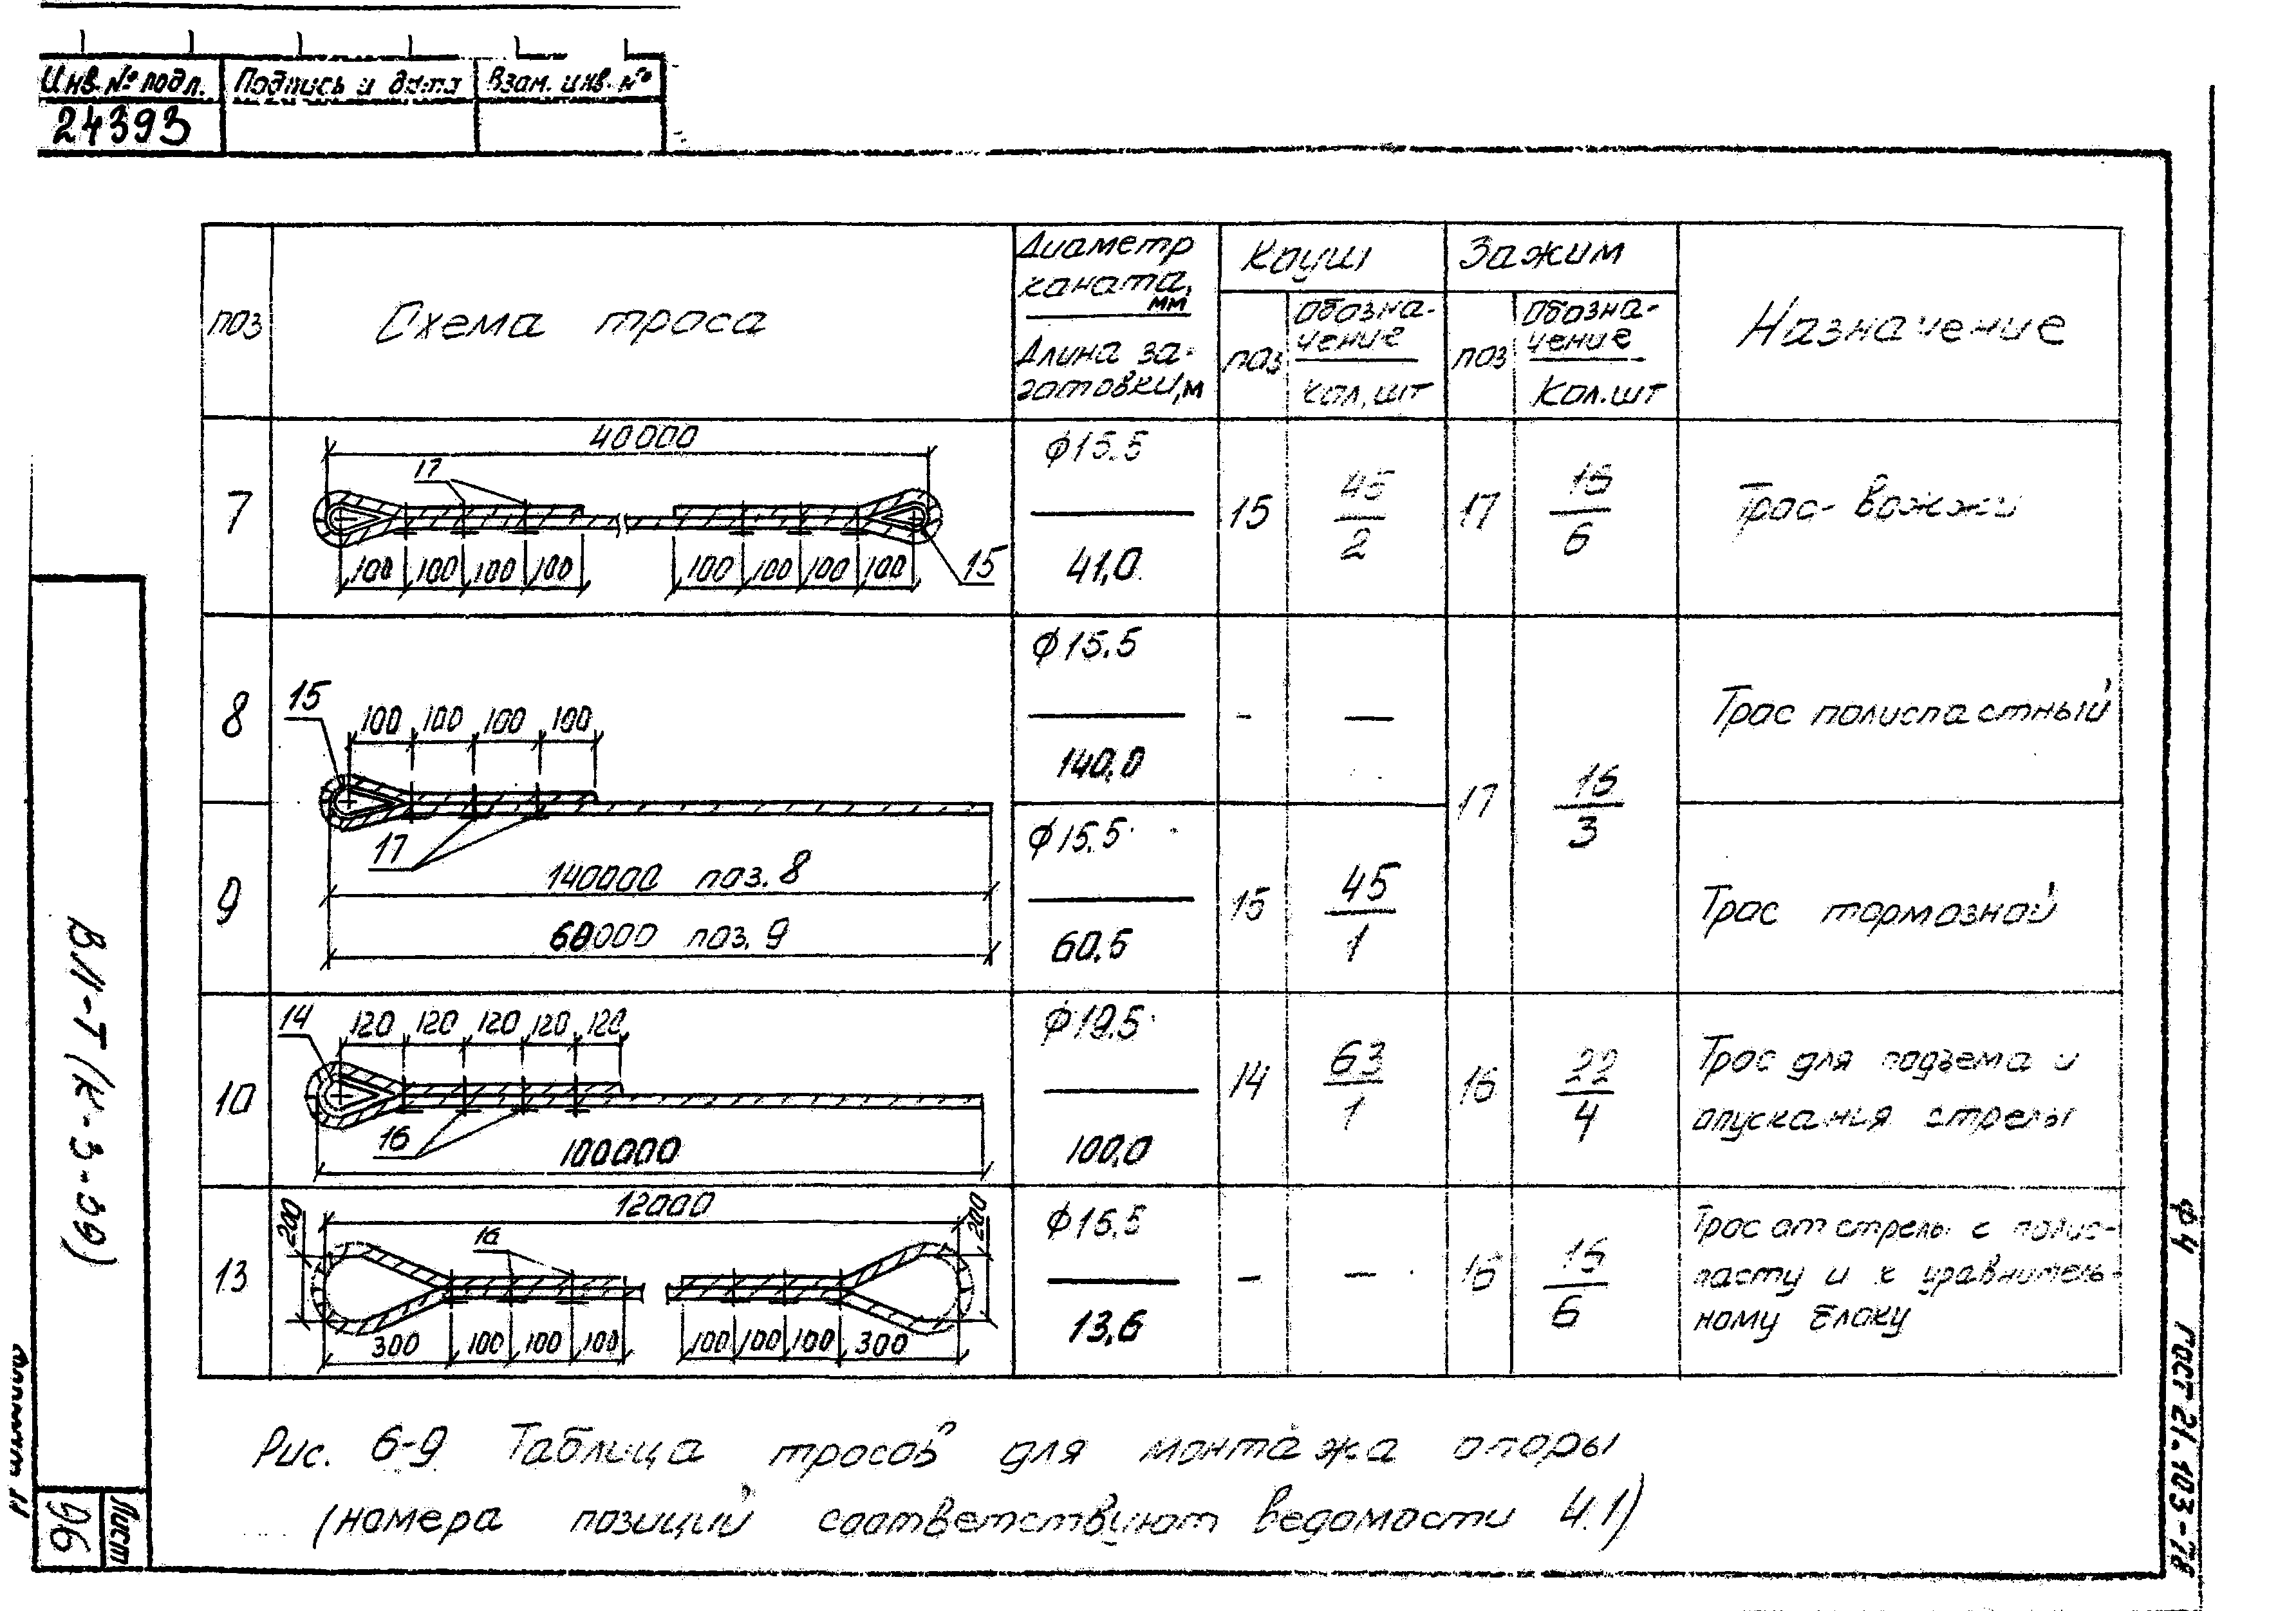 Инв.№ подл. Подпись и дата Взам. инв. №
24393
поз
Схема троса
Диаметр
каната,
мм
Длина за-
готовки,м
Коуш
поз
Обозна-
чение
кол,шт
Зажим
поз
Обозна-
чение
Кол.шт
Назначение
7
40000
17
100 100 100 100 100 100 100 100
15
ф15.5
41,0
15
45
2
17
16
6
Трос-вожжи
8
15
100 100 100 100
17
140000 поз. 8
ф15.5
140,0
- —
17
16
3
Трос полиспастный
9
60000 поз. 9
ф15.5
60.5
15
45
1
Трос тормозной
10
14
120 120 120 120 120
16
100000
ф19.5
100,0
14
63
1
16
22
4
Трос для подъема и
опускания стрелы
13
12000
200
16
200
300 100 100 100 100 100 100 300
ф15.5
13,6
- —
16
16
6
Трос от стрелы с полис-
пасту и к уравнитель-
ному блоку
Рис. 6-9 Таблица тросов для монтажа опоры
(номера позиций соответствуют ведомости 4.1)
ВЛ-Т (К-3-59)
Лист
96
Ф4 ГОСТ 21.103-78